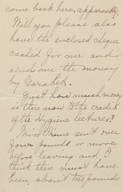 come back here, apparently.
Will you please also
have the enclosed cheque
cashed for me and
send me the money
by Elizabeth.
Just how much money
is there now to the credit
of the Hygiene lectures?
Miss Thorne sent over
some pounds or more
before leaving and I
think there must have
been about two pounds